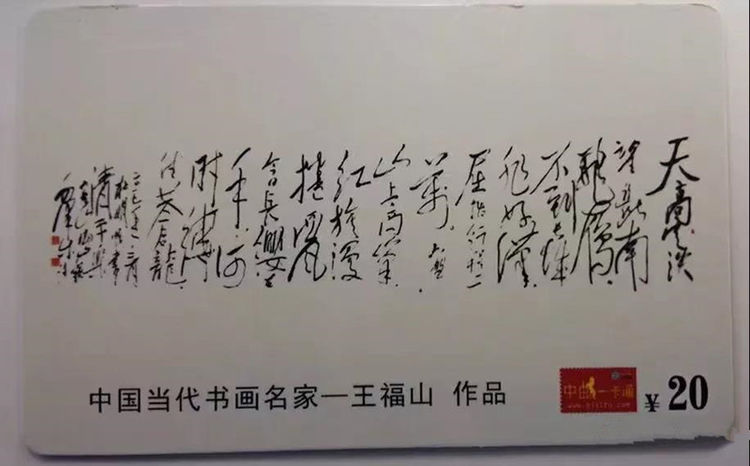 天高云淡
望断南
飞雁
不到长城
非好汉
屈指行程二
万六盘
山上高峰
红旗漫
捲西风
今日长缨在
手何
时缚
住苍龙
清平乐
中国当代书画名家一王福山 作品
中邮一卡通
¥20